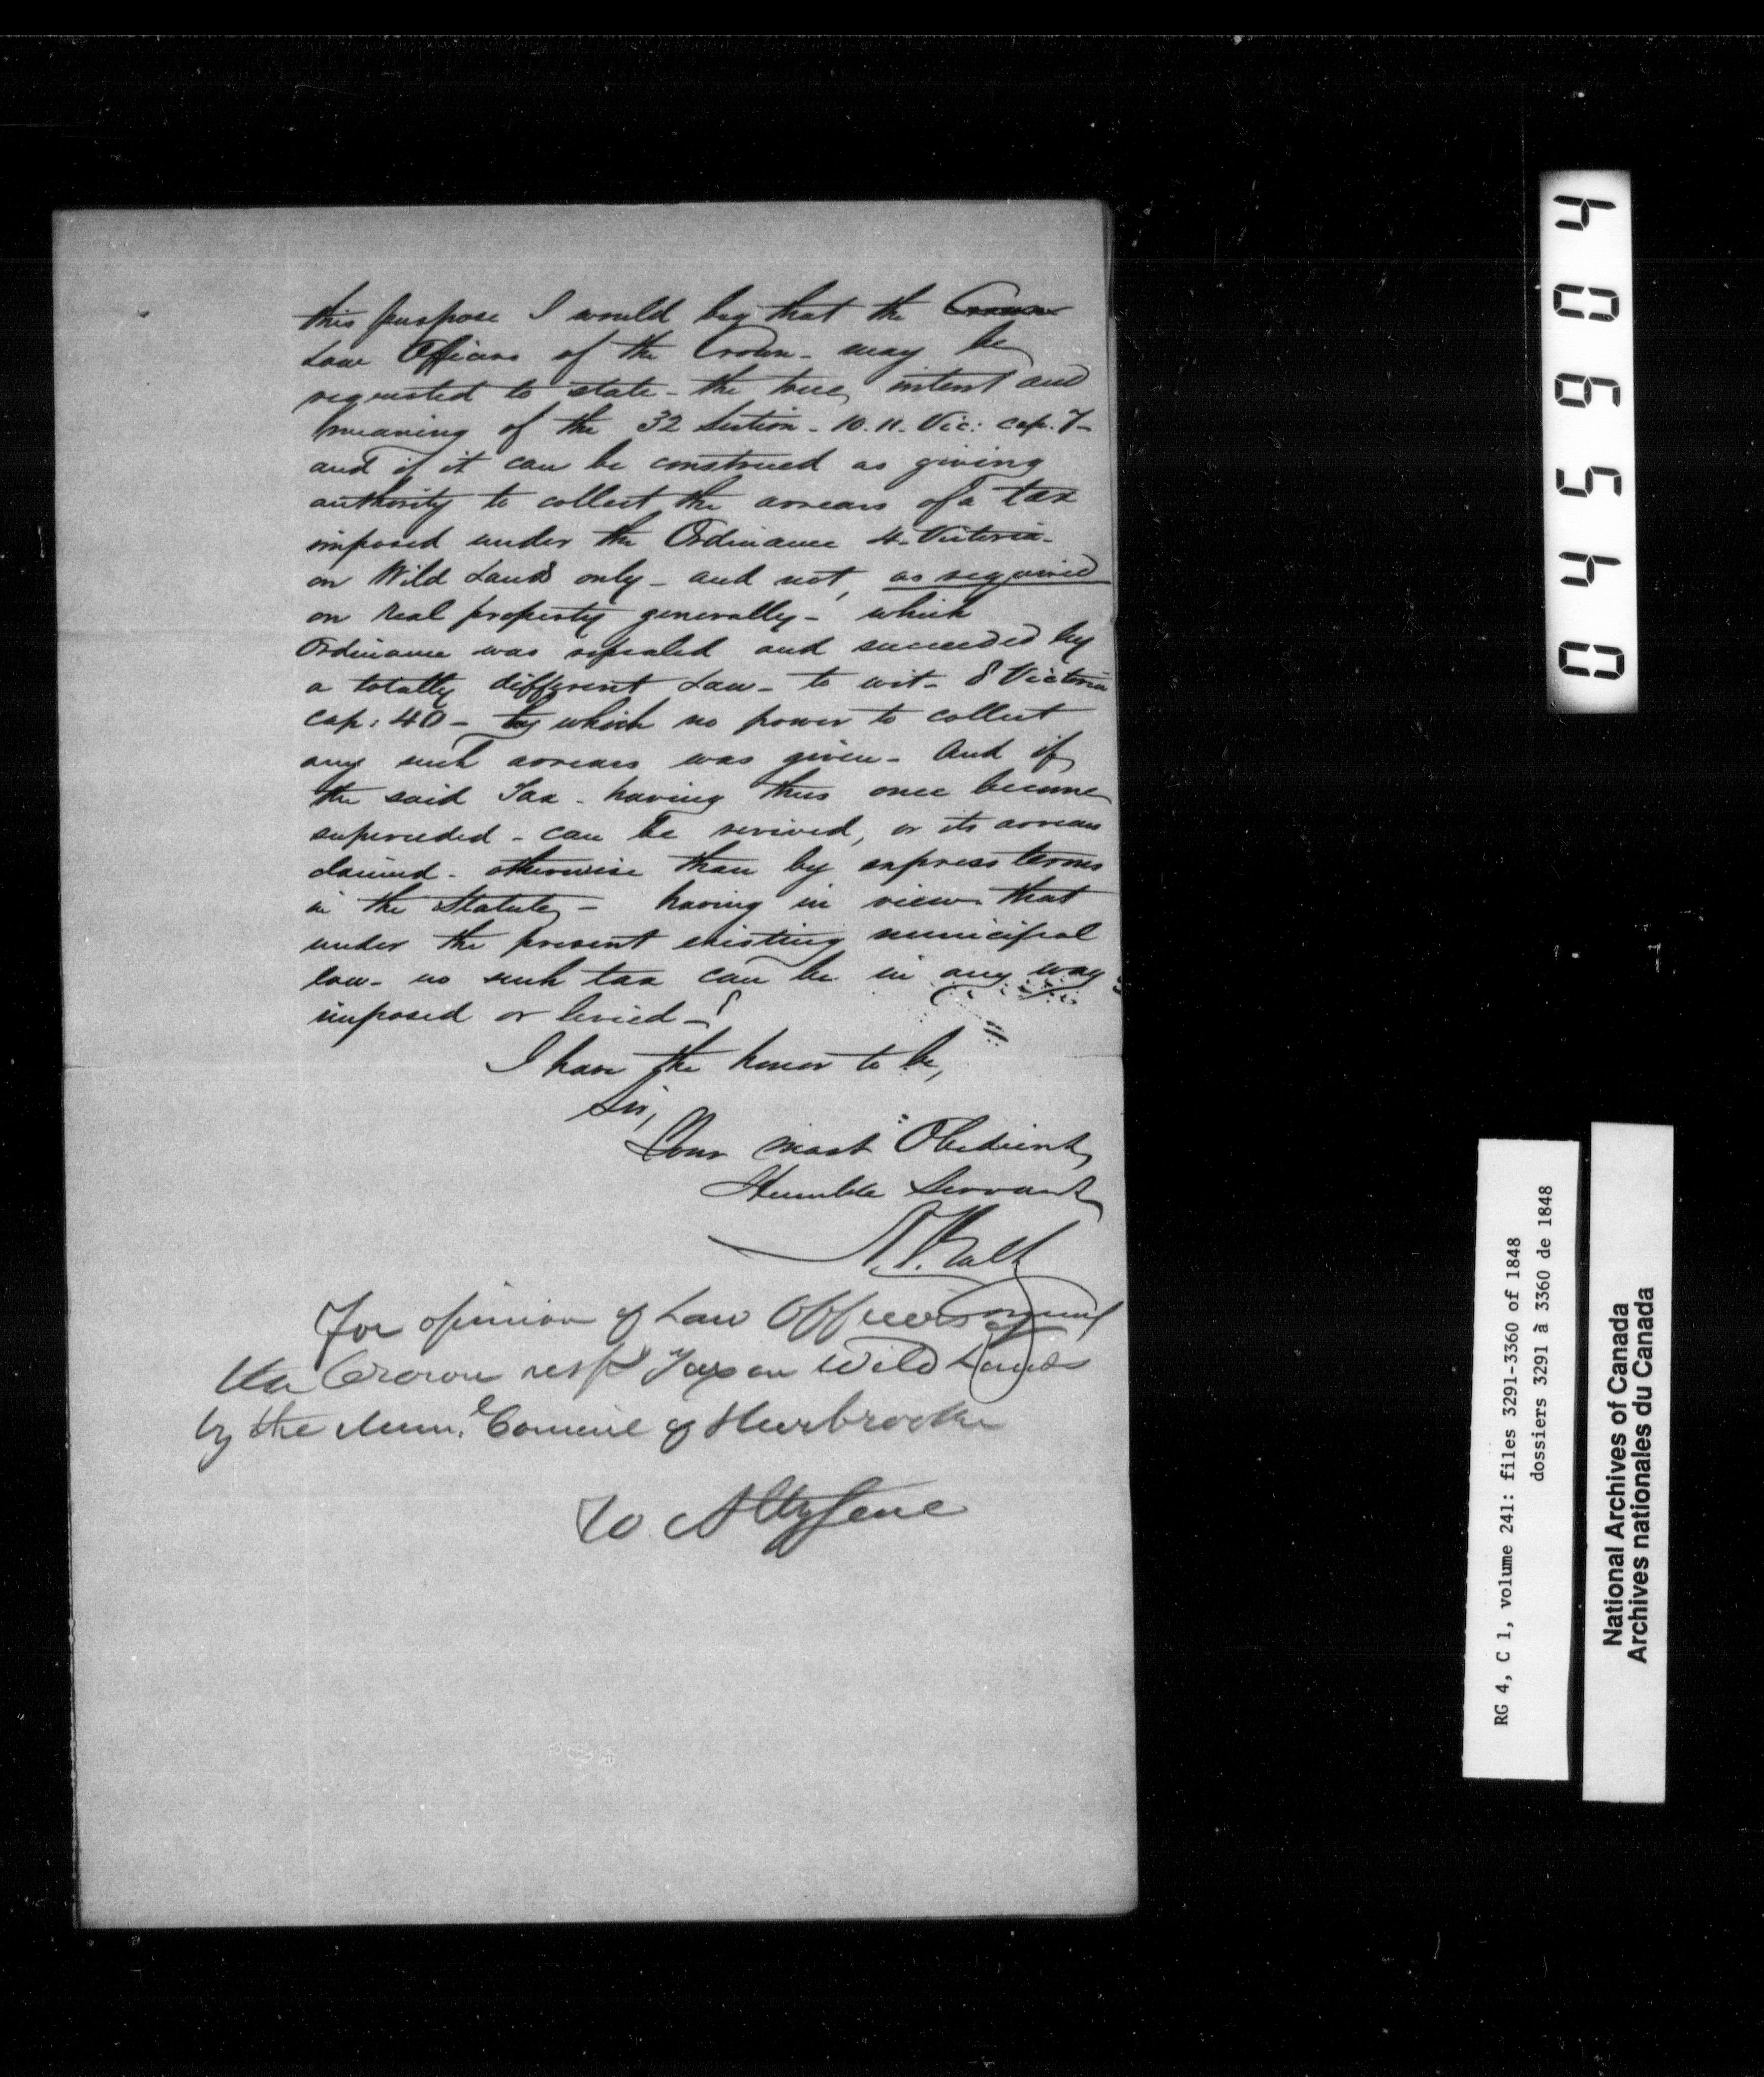 this purpose I would beg that the Crown
Law Officers of the Crown - may be
requested to state - the true intent and
meaning of the 32 Section - 10.11. Vic: cap. 7 -
and if it can be construed as giving
authority to collect the arrears of a tax
imposed under the Ordinance 4. Victoria -
on Wild Lands only - and not, as required
on real property generally - which
Ordinance was repealed and succeeded by
a totally different Law - to wit - 8 Victoria
cap: 40 - by which no power to collect
any such arrears was given - And if
the said Tax - having thus once become
superceded - can be revived, or its arrears
claimed - otherwise than by express terms
in the Statute - having in view that
under the present existing municipal
law - no such tax can be in any way
imposed or levied - ?
I have the honor to be,
Sir,
Your most Obedient
Humble Servant
A. T. Galt
For opinion of Law Officers of
the Crown resp Tax on Wild Lands
by the Mun.l Council of Sherbrooke
To Atty Genl
045904
RG 4, C 1, volume 241: files 3291-3360 of 1848
dossiers 3291 à 3360 de 1848
National Archives of Canada
Archives nationales du Canada